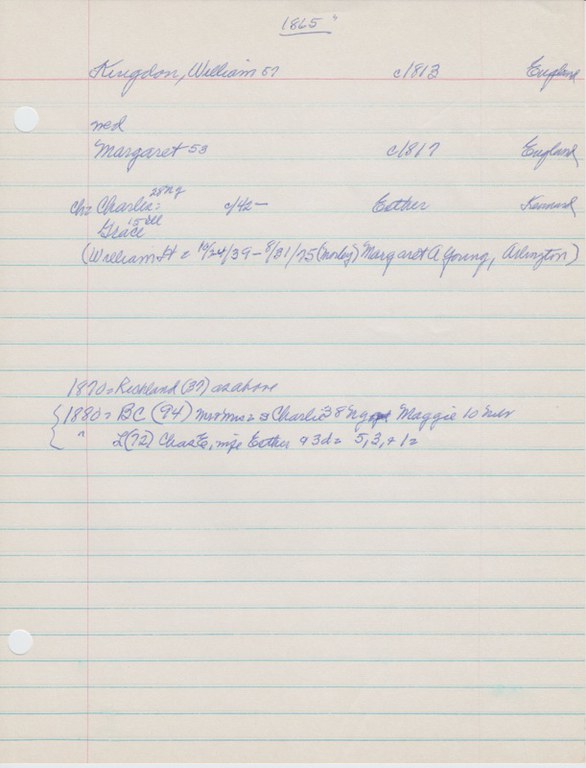 1865 "
Kingdon, William 57 c/1813 England
med
Margaret 53 c/1817 England
28 Ng
ch= Charlie= c/42- Esther Kennard
15 Ill
Grace
(William H c 10/24/39 - 8/31/75 (Morley) Margaret A Young, Arlington)
1870= Richland (37) as above
1880= BC (94) Mr+Mrs= s Charlie 38 Ng Maggie 10 Nebr
" L (72) Chas E, wife Esther + 3d= 5, 3, + 1=